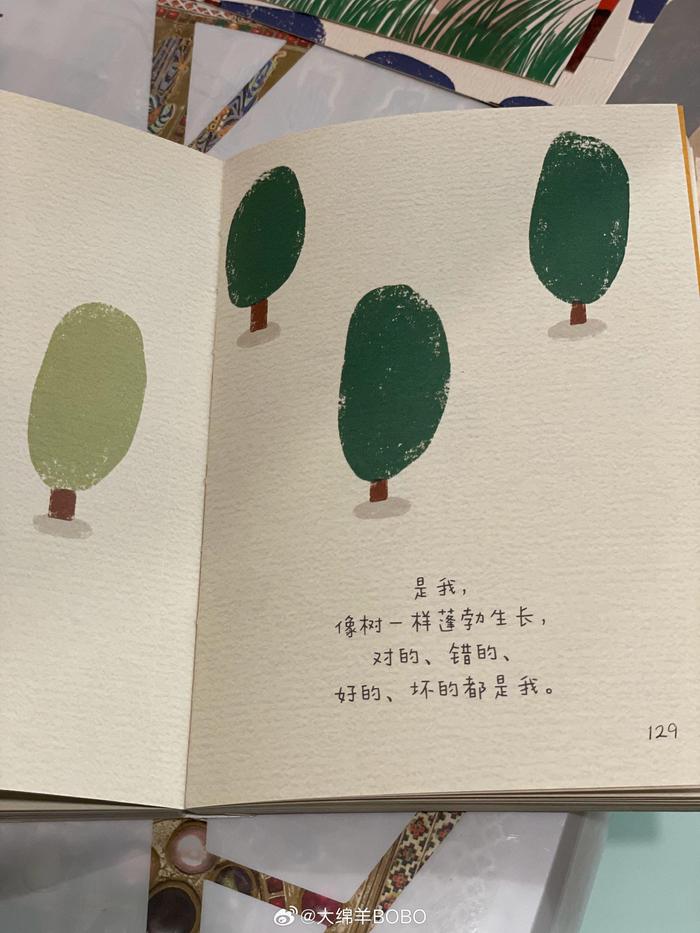 是我，
像树一样蓬勃生长，
对的、错的、
好的、坏的都是我。
129
@大绵羊BOBO